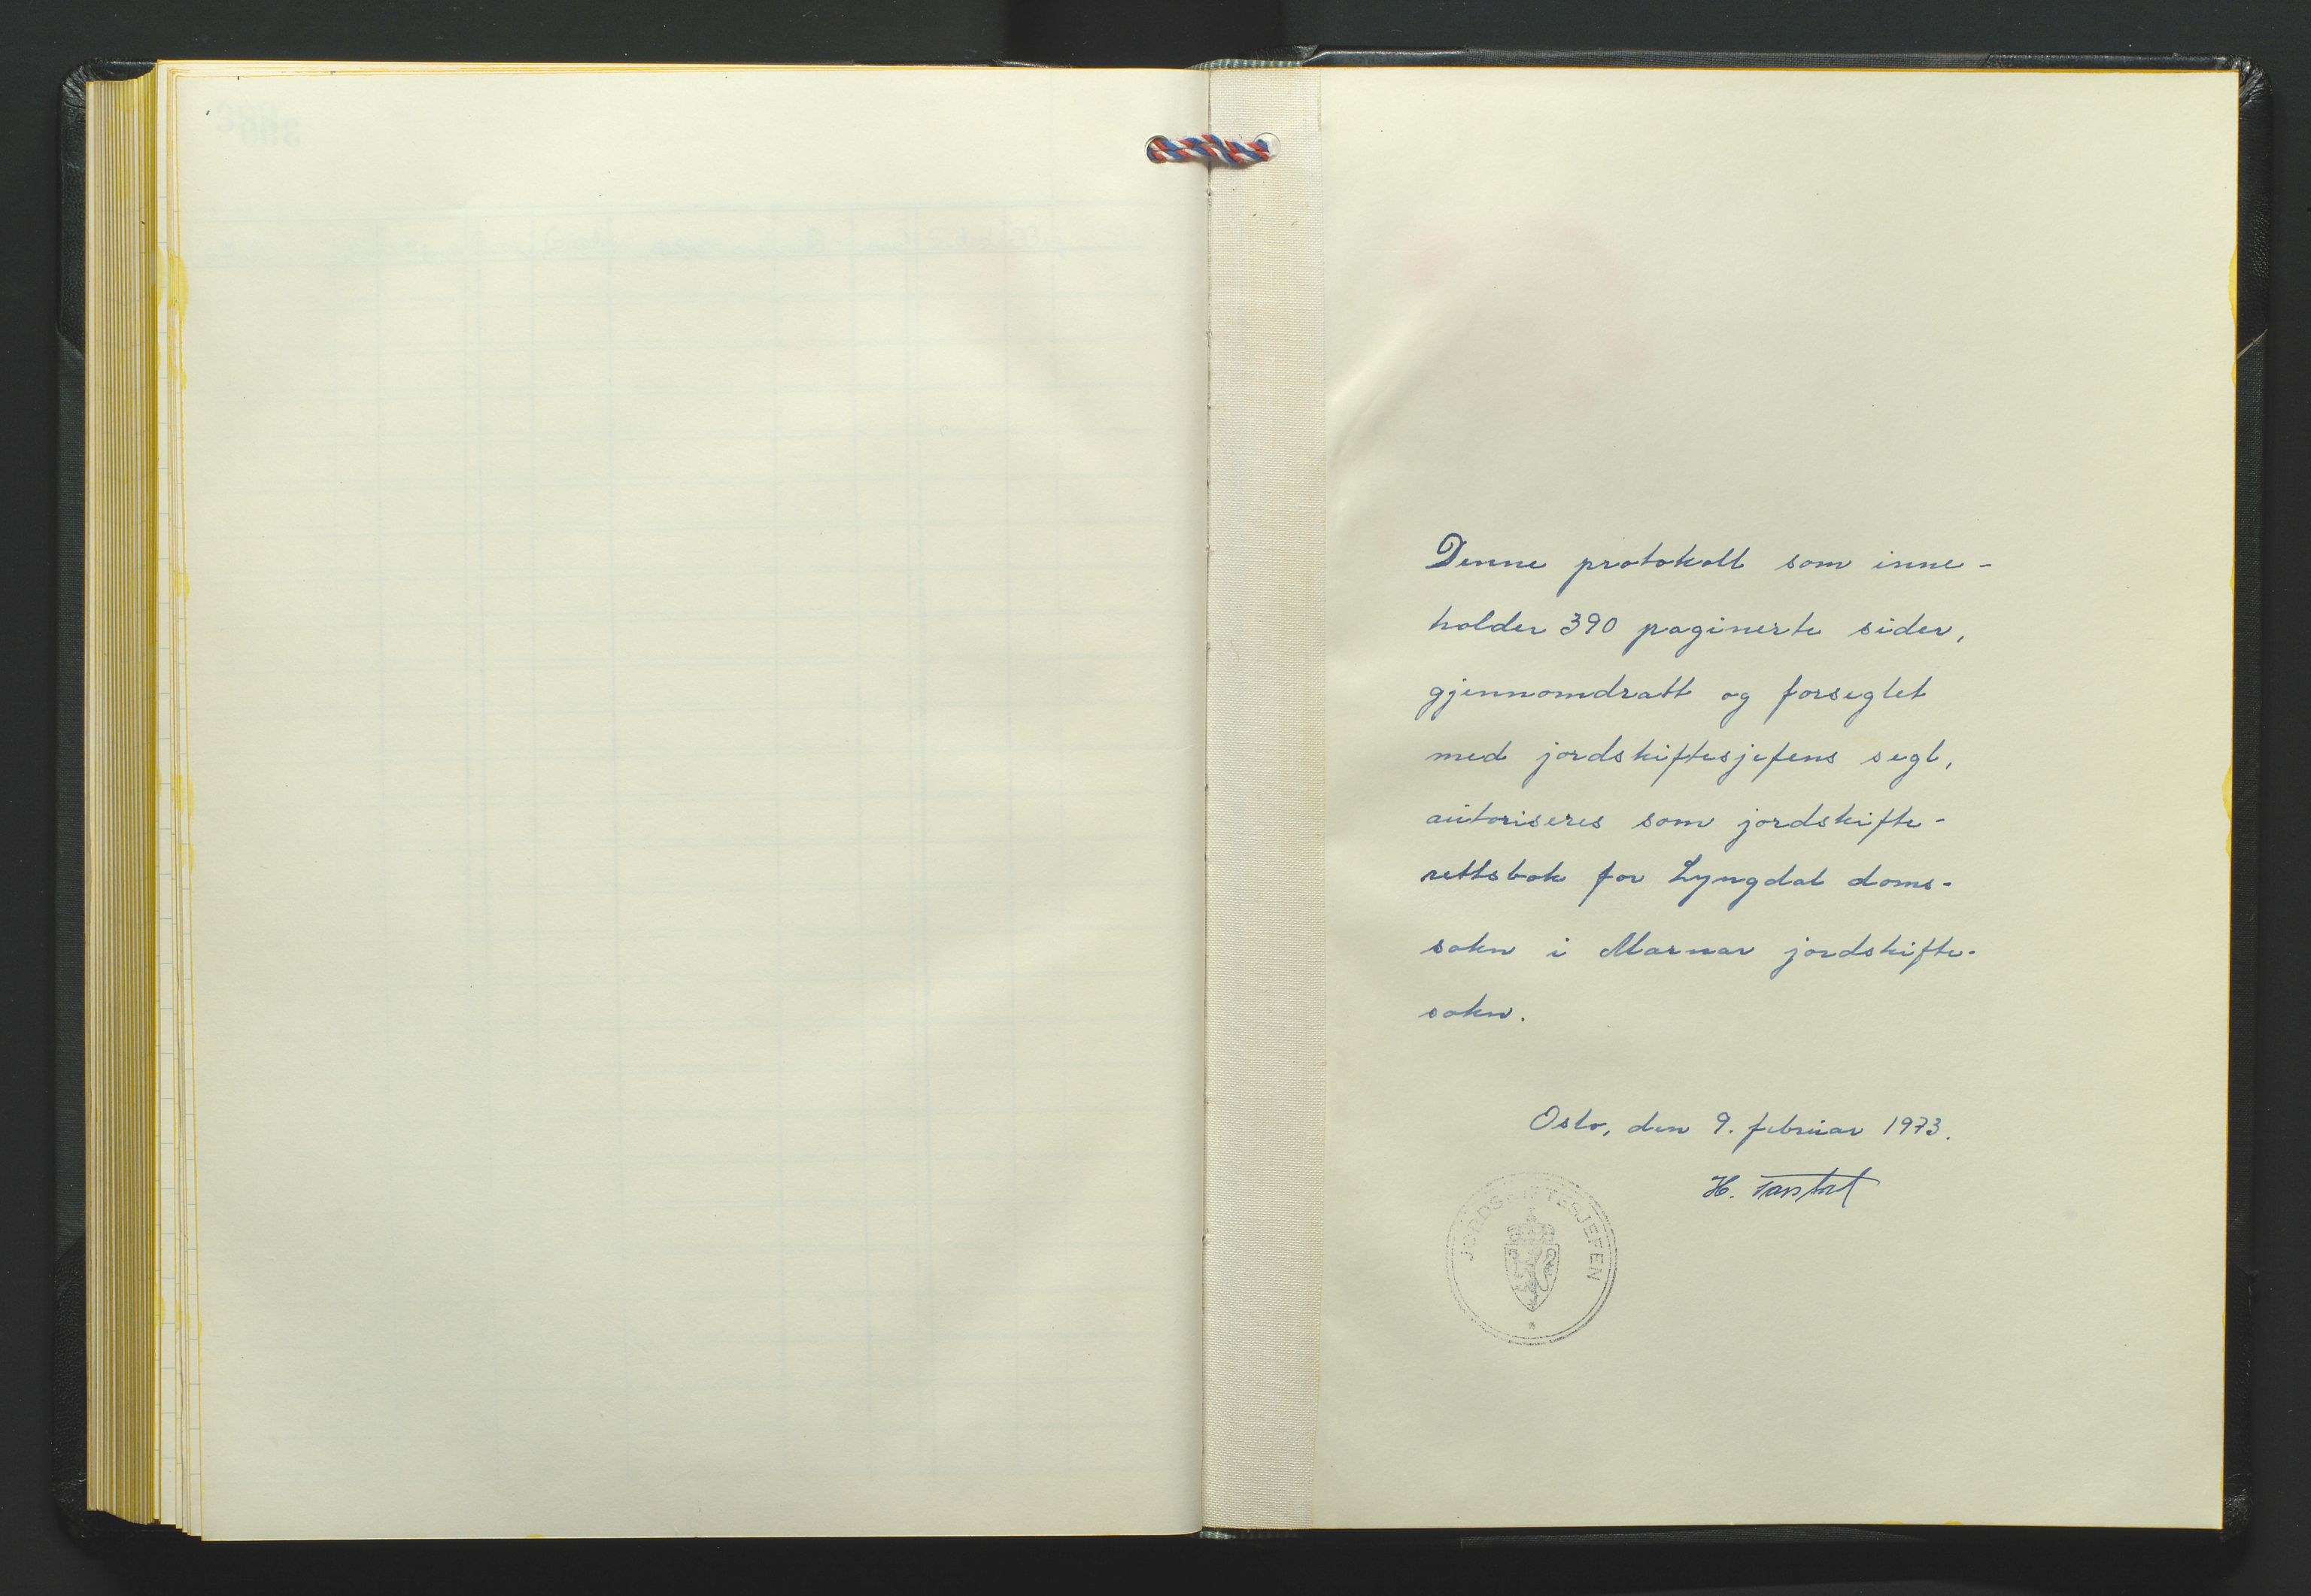 Denne protokoll som inne-
holder 390 paginerte sider,
gjennomdratt og forseglet
med jordskiftesjefens segl,
autoriseres som jordskifte-
rettsbok for Lyngdal doms-
sokn i Marnar jordskifte-
sokn.
Oslo, den 9. februar 1973.
H.
JORDSKIFTESJEFEN